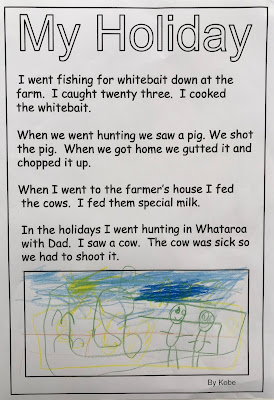 My Holiday
I went fishing for whitebait down at the
farm. I caught twenty three. I cooked
the whitebait.
When we went hunting we saw a pig. We shot
the pig. When we got home we gutted it and
chopped it up.
When I went to the farmer's house I fed
the cows. I fed them special milk.
In the holidays I went hunting in Whataroa
with Dad. I saw a cow. The cow was sick so
we had to shoot it.
By Kobe